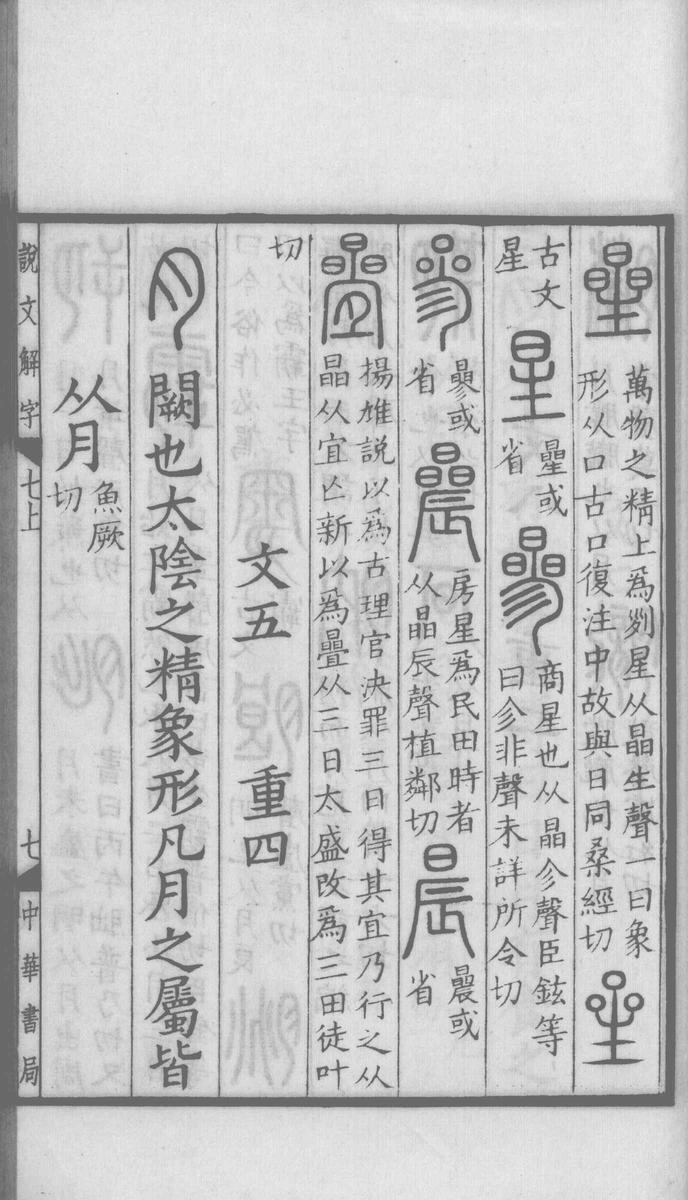 曐萬物之精上爲列星从晶生聲一曰象
形从口古口復注中故與日同桑經切𠻖
古文
星星曐或
省曑商星也从晶㐱聲臣鉉等
曰㐱非聲未詳所今切
參曑或
省曟房星爲民田時者
从晶辰聲植鄰切晨曟或
省
疊揚雄説以爲古理官決罪三日得其宜乃行之从
晶从宜亡新以爲疊从三日太盛改爲三田徒叶
切
文五 重四
月闕也太陰之精象形凡月之屬皆
从月魚厥
切
說文解字 七上 七 中華書局